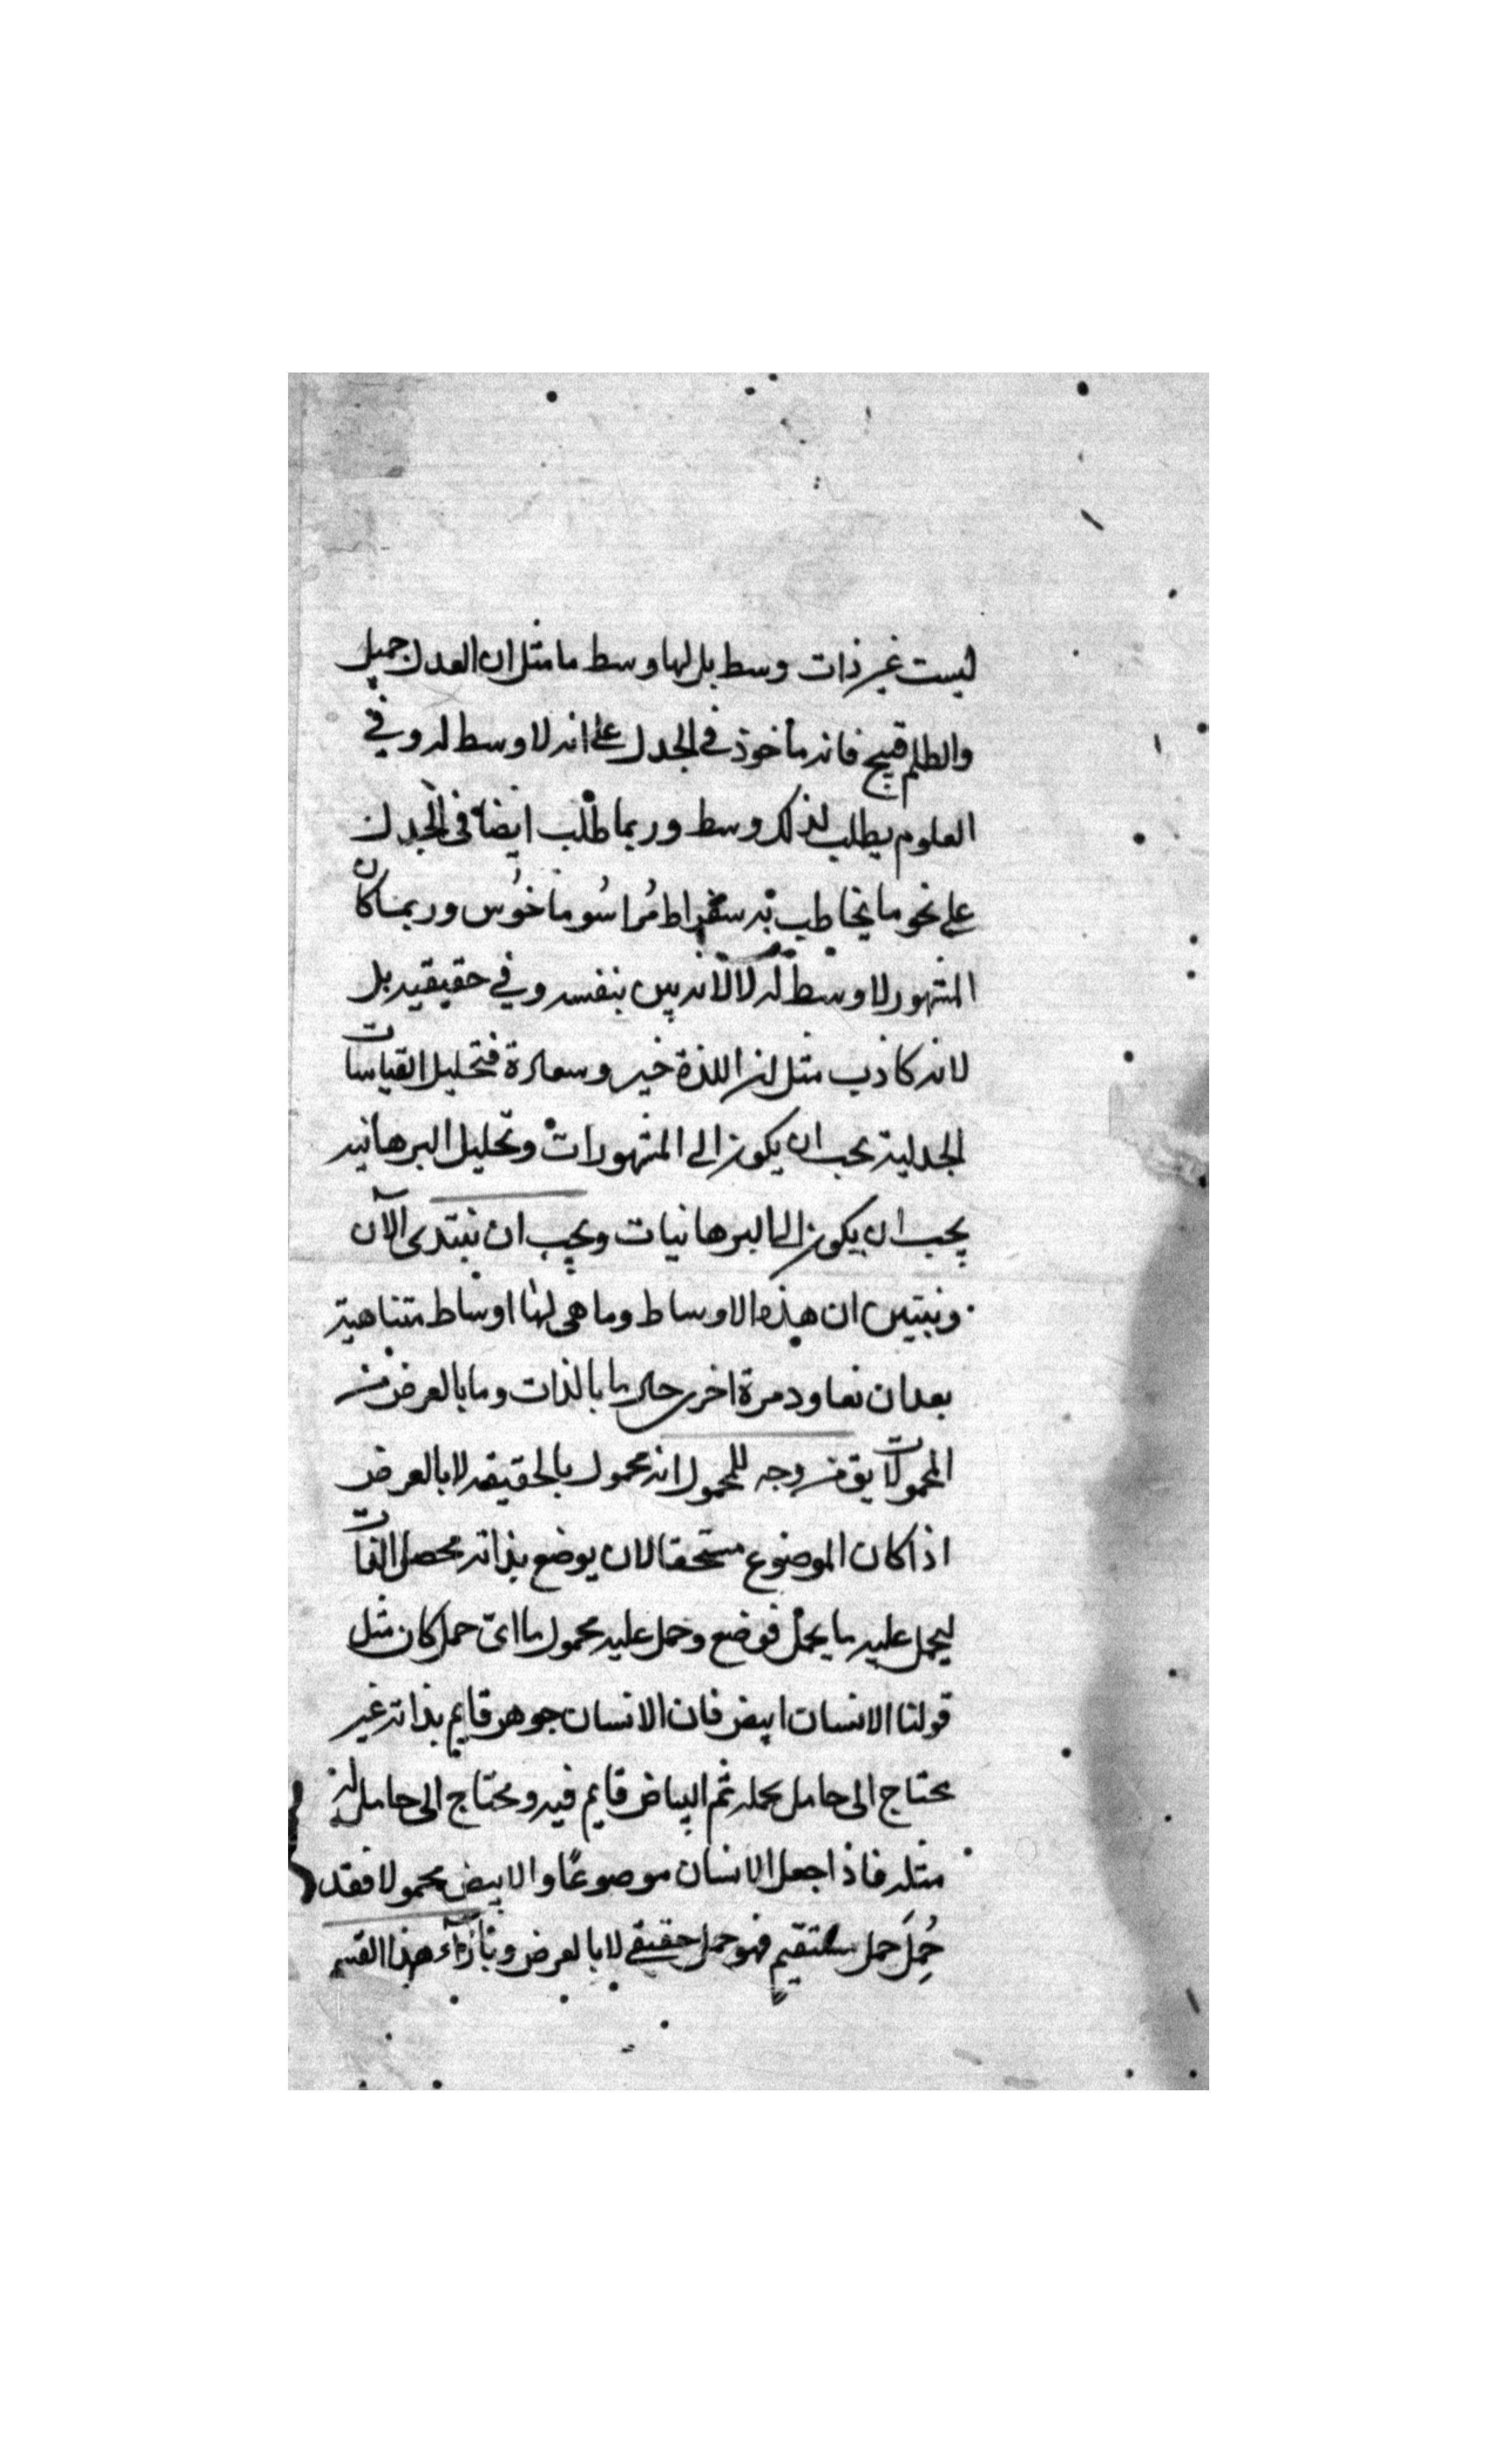 ليست غير ذات وسط بل لها وسط ما مثل ان العدل جميل
والظلم قبيح فانه مأخوذ في الجدل على انه لا وسط له وفي
العلوم يطلب لذلك وسط وربما طلب ايضا في الجدل
على نحو ما يخاطب به سقراط ثراسوماخوس وربما كان
المشهور لا وسط له لا لانه بين بنفسه وفي حقيقيه بل
لانه كاذب مثل ان اللذة خير وسعادة فتحليل القياسات
الجدلية يجب ان يكون الى المشهورات وتحليل البرهانيه
يجب ان يكون الى البرهانيات ويجب ان نبتدى الآن
ونبين ان هذه الاوساط وما هي لها اوساط متناهية
بعد ان نعاود مرة اخرى حال ما بالذات وما بالعرض من
المحمولات يق من وجه للمحمول انه محمول بالحقيقه لا بالعرض
اذا كان الموضوع مستحقا لان يوضع بذاته محصل الذات
ليحمل عليه ما يحمل فوضع وحمل عليه محمول ما اىّ حمل كان مثل
قولنا الانسان ابيض فان الانسان جوهر قايم بذاته غير
محتاج الى حامل يحمله ثم البياض قايم فيه ومحتاج الى حامل له
مثله فاذا جعل الانسان موضوعًا والابيض محمولا فقد
حُمِلَ حمل مستقيم فهو حمل حقيقي لا بالعرض وبازآء هذا القسم